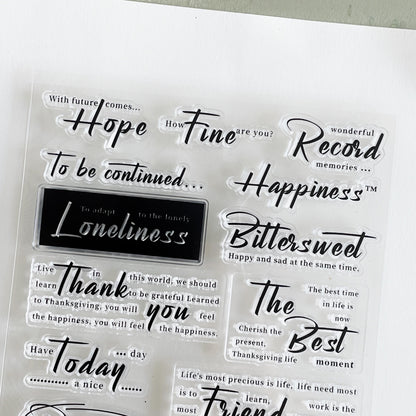 With future comes...
Hope
How Fine are you?
wonderful
Record
memories ...
To be continued...
Happiness™
To adapt to the lonely
Loneliness
Bittersweet
Happy and sad at the same time.
Live in this world, we should
learn Thank to be grateful Learned
to Thanksgiving, you will you feel
the happiness, you will feel the happiness.
The The best time
in life is
now
Cherish the Best
present,
Thanksgiving life moment
Have Today ... day
............ a nice ......
Life's most precious is life, life need most
is to learn,
most Friend work is the
most